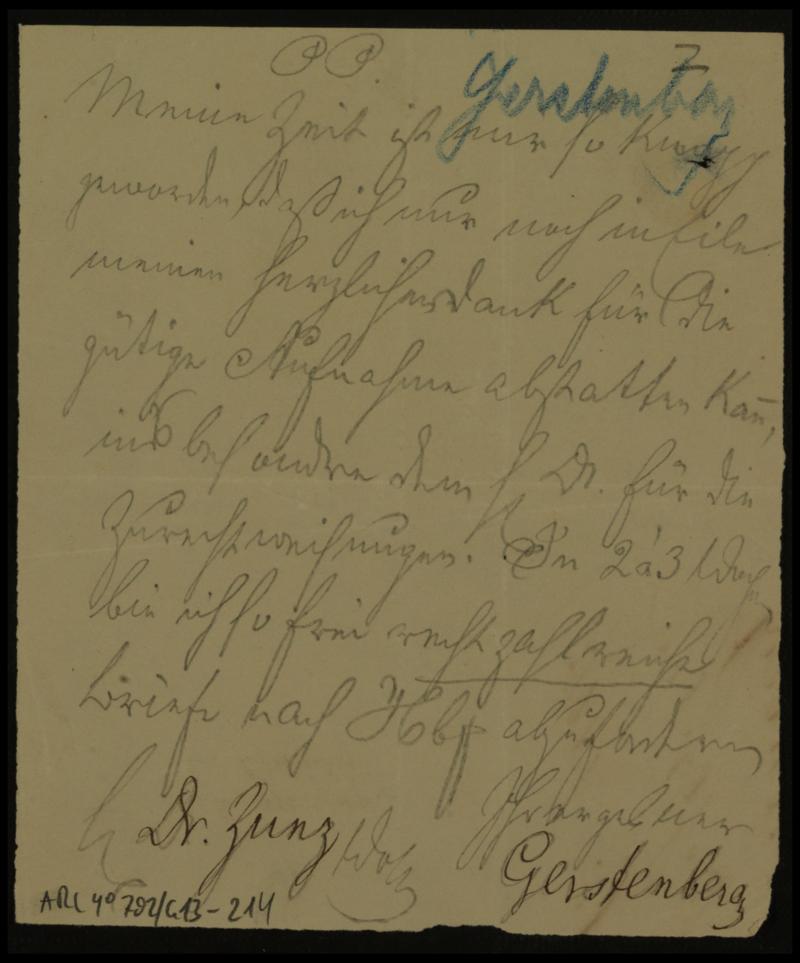 PP.
Gerstenberg
7
Meine Zeit ist nur so knapp
geworden, daß ich nur noch in Eile
meinen herzlichen Dank für die
gütige Aufnahme abstatten kañ,
insbesondre dem H Dr. für die
Zurechtweisungen. In 2 à 3
bin ich so frei recht zahlreiche
Briefe nach Hbg abzufordern
Ihr ergebener
Dr. Zunz
Gerstenberg
ARC 4° 792/G13-214